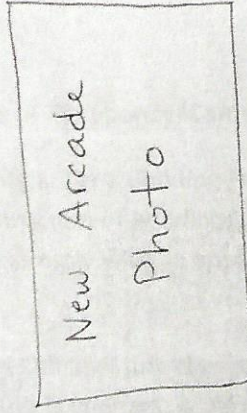 New Arcade
Photo